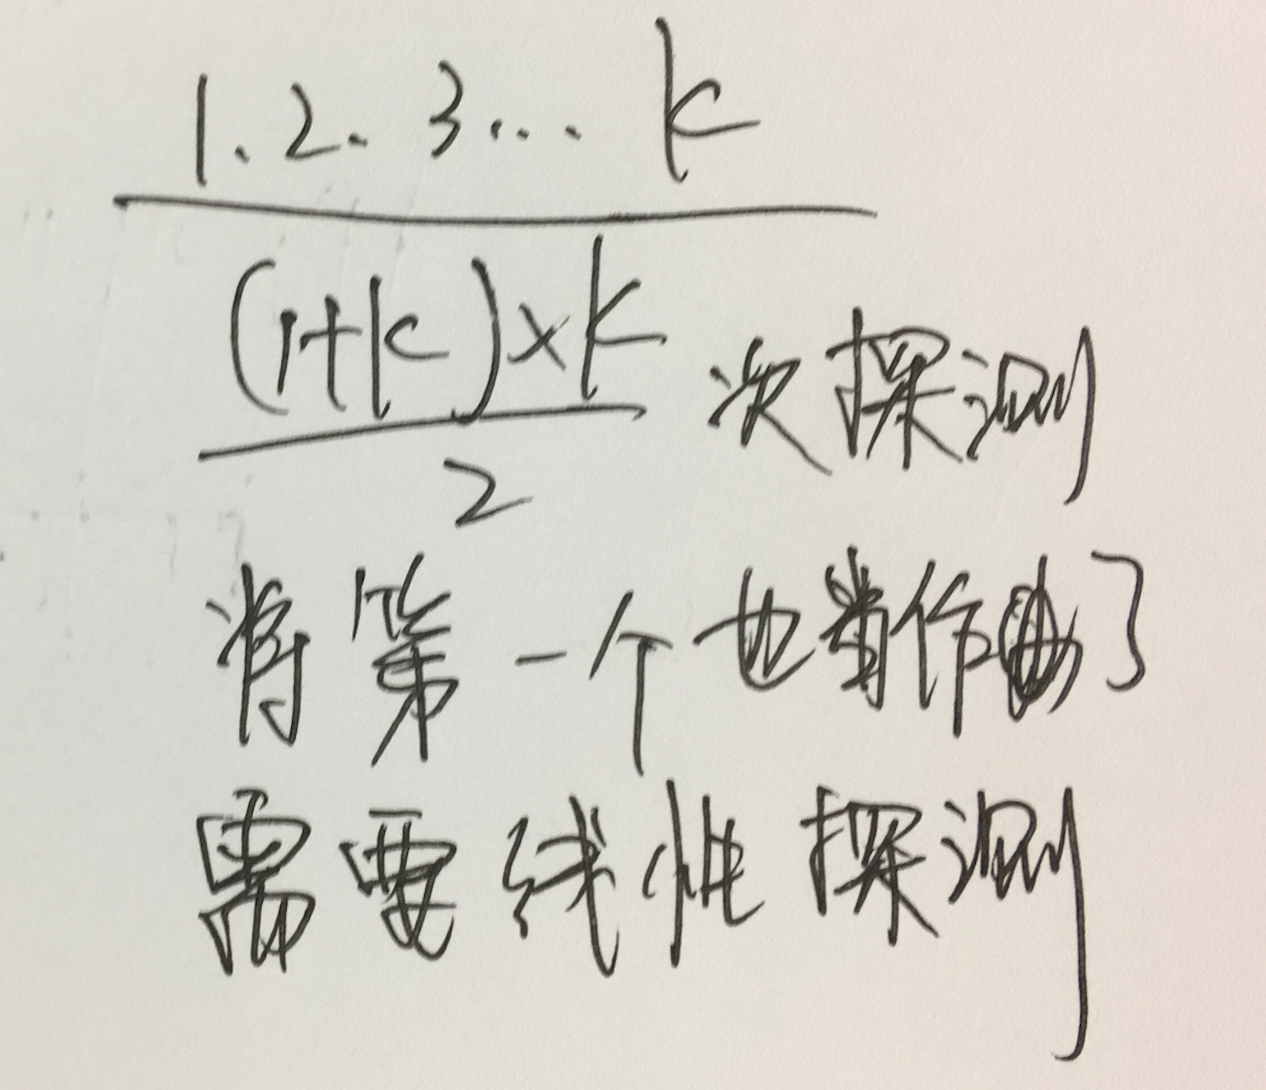 1.2.3... k
(1+k)×k
2
次探测
将第一个也当作由了
需要线性探测